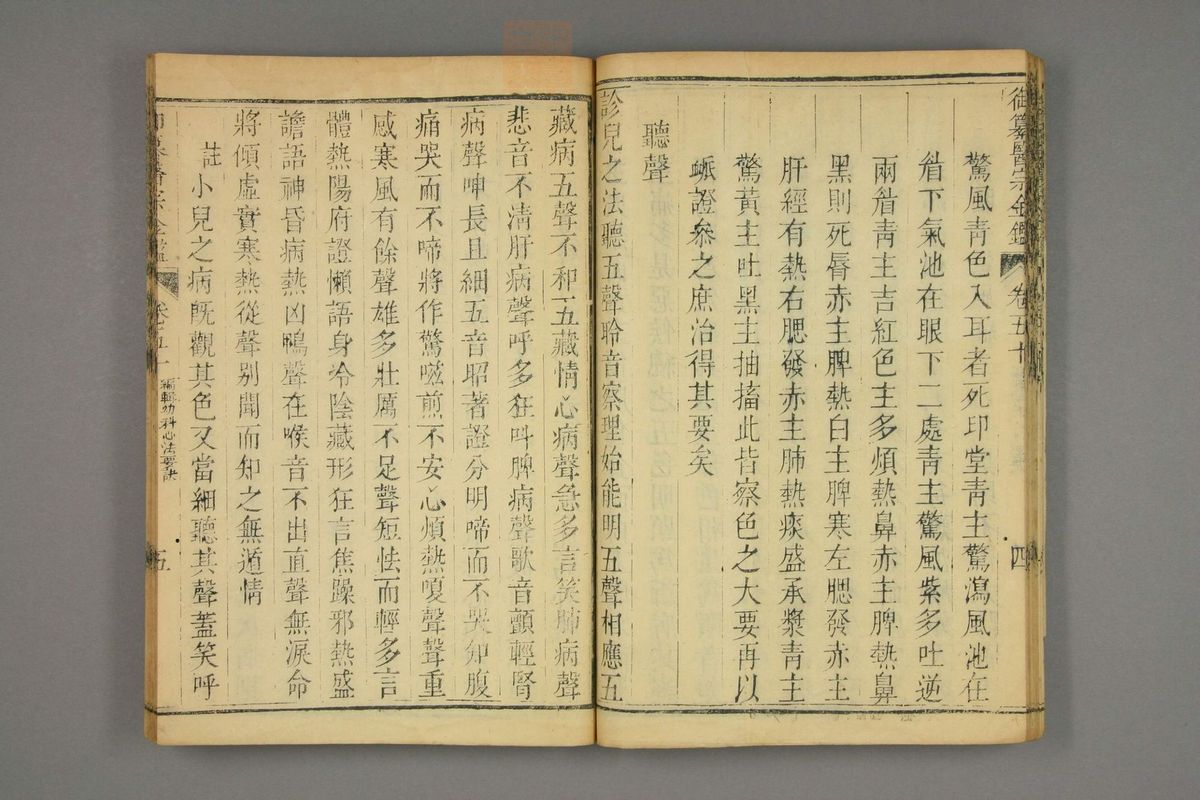 御纂醫宗金鑑 卷五十 四
驚風青色入耳者死印堂青主驚瀉風池在
眉下氣池在眼下二處青主驚風紫多吐逆
兩眉青主吉紅色主多煩熱鼻赤主脾熱鼻
黑則死唇赤主脾熱白主脾寒左腮發赤主
肝經有熱右腮發赤主肺熱痰盛承漿青主
驚黃主吐黑主抽搐此皆察色之大要再以
脈證叅之庶治得其要矣
聽聲
診兒之法聽五聲聆音察理始能明五聲相應五
藏病五聲不和五藏情心病聲急多言笑肺病聲
悲音不清肝病聲呼多狂呌脾病聲歌音顫輕腎
病聲呻長且細五音昭著證分明啼而不哭知腹
痛哭而不啼將作驚嗞煎不安心煩熱嗄聲聲重
感寒風有餘聲雄多壯厲不足聲短怯而輕多言
體熱陽府證懶語身冷陰藏形狂言焦躁邪熱盛
譫語神昏病熱凶鴨聲在喉音不出直聲無淚命
將傾虛實寒熱從聲別聞而知之無遁情
註小兒之病旣觀其色又當細聽其聲蓋笑呼
醫宗金鑑 卷五十 編輯幼科心法要訣 五